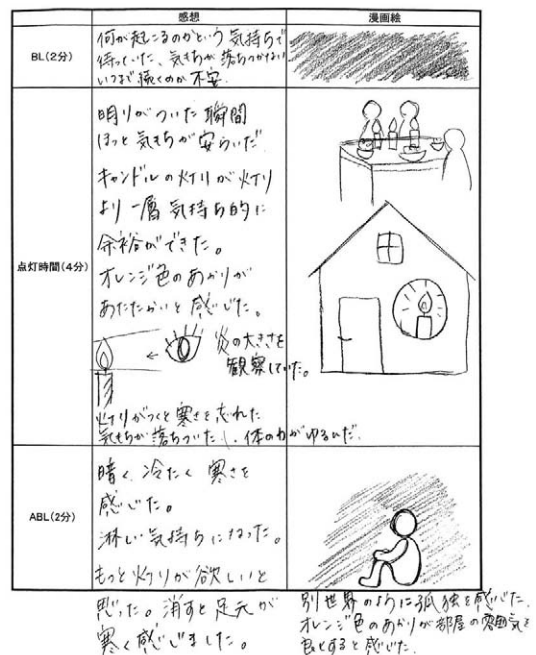 感想
漫画絵
BL(2分)
何が起こるのかという気持ちで
待っていた、気きちが落ちつかない
いつまで続くのか不安
点灯時間(4分)
明りがついた瞬間
ほっと気きちが安らいだ
キャンドルの灯りが灯り
より一層気持ち的に
余裕ができた。
オレンジ色のあかりが
あたたかいと感じた。
炎の大きさを
観察していた。
灯りがつくと寒さを忘れた
気もちが落ちついたし、体の力がゆるんだ。
ABL(2分)
暗く、冷たく 寒さを
感じた。
淋しい気持ちになった。
もっと灯りが欲しいと
思った。消すと足元が
寒く感じました。
別世界のように孤独を感じた。
オレンジ色のあかりが部屋の雰囲気を
とすると感じた。